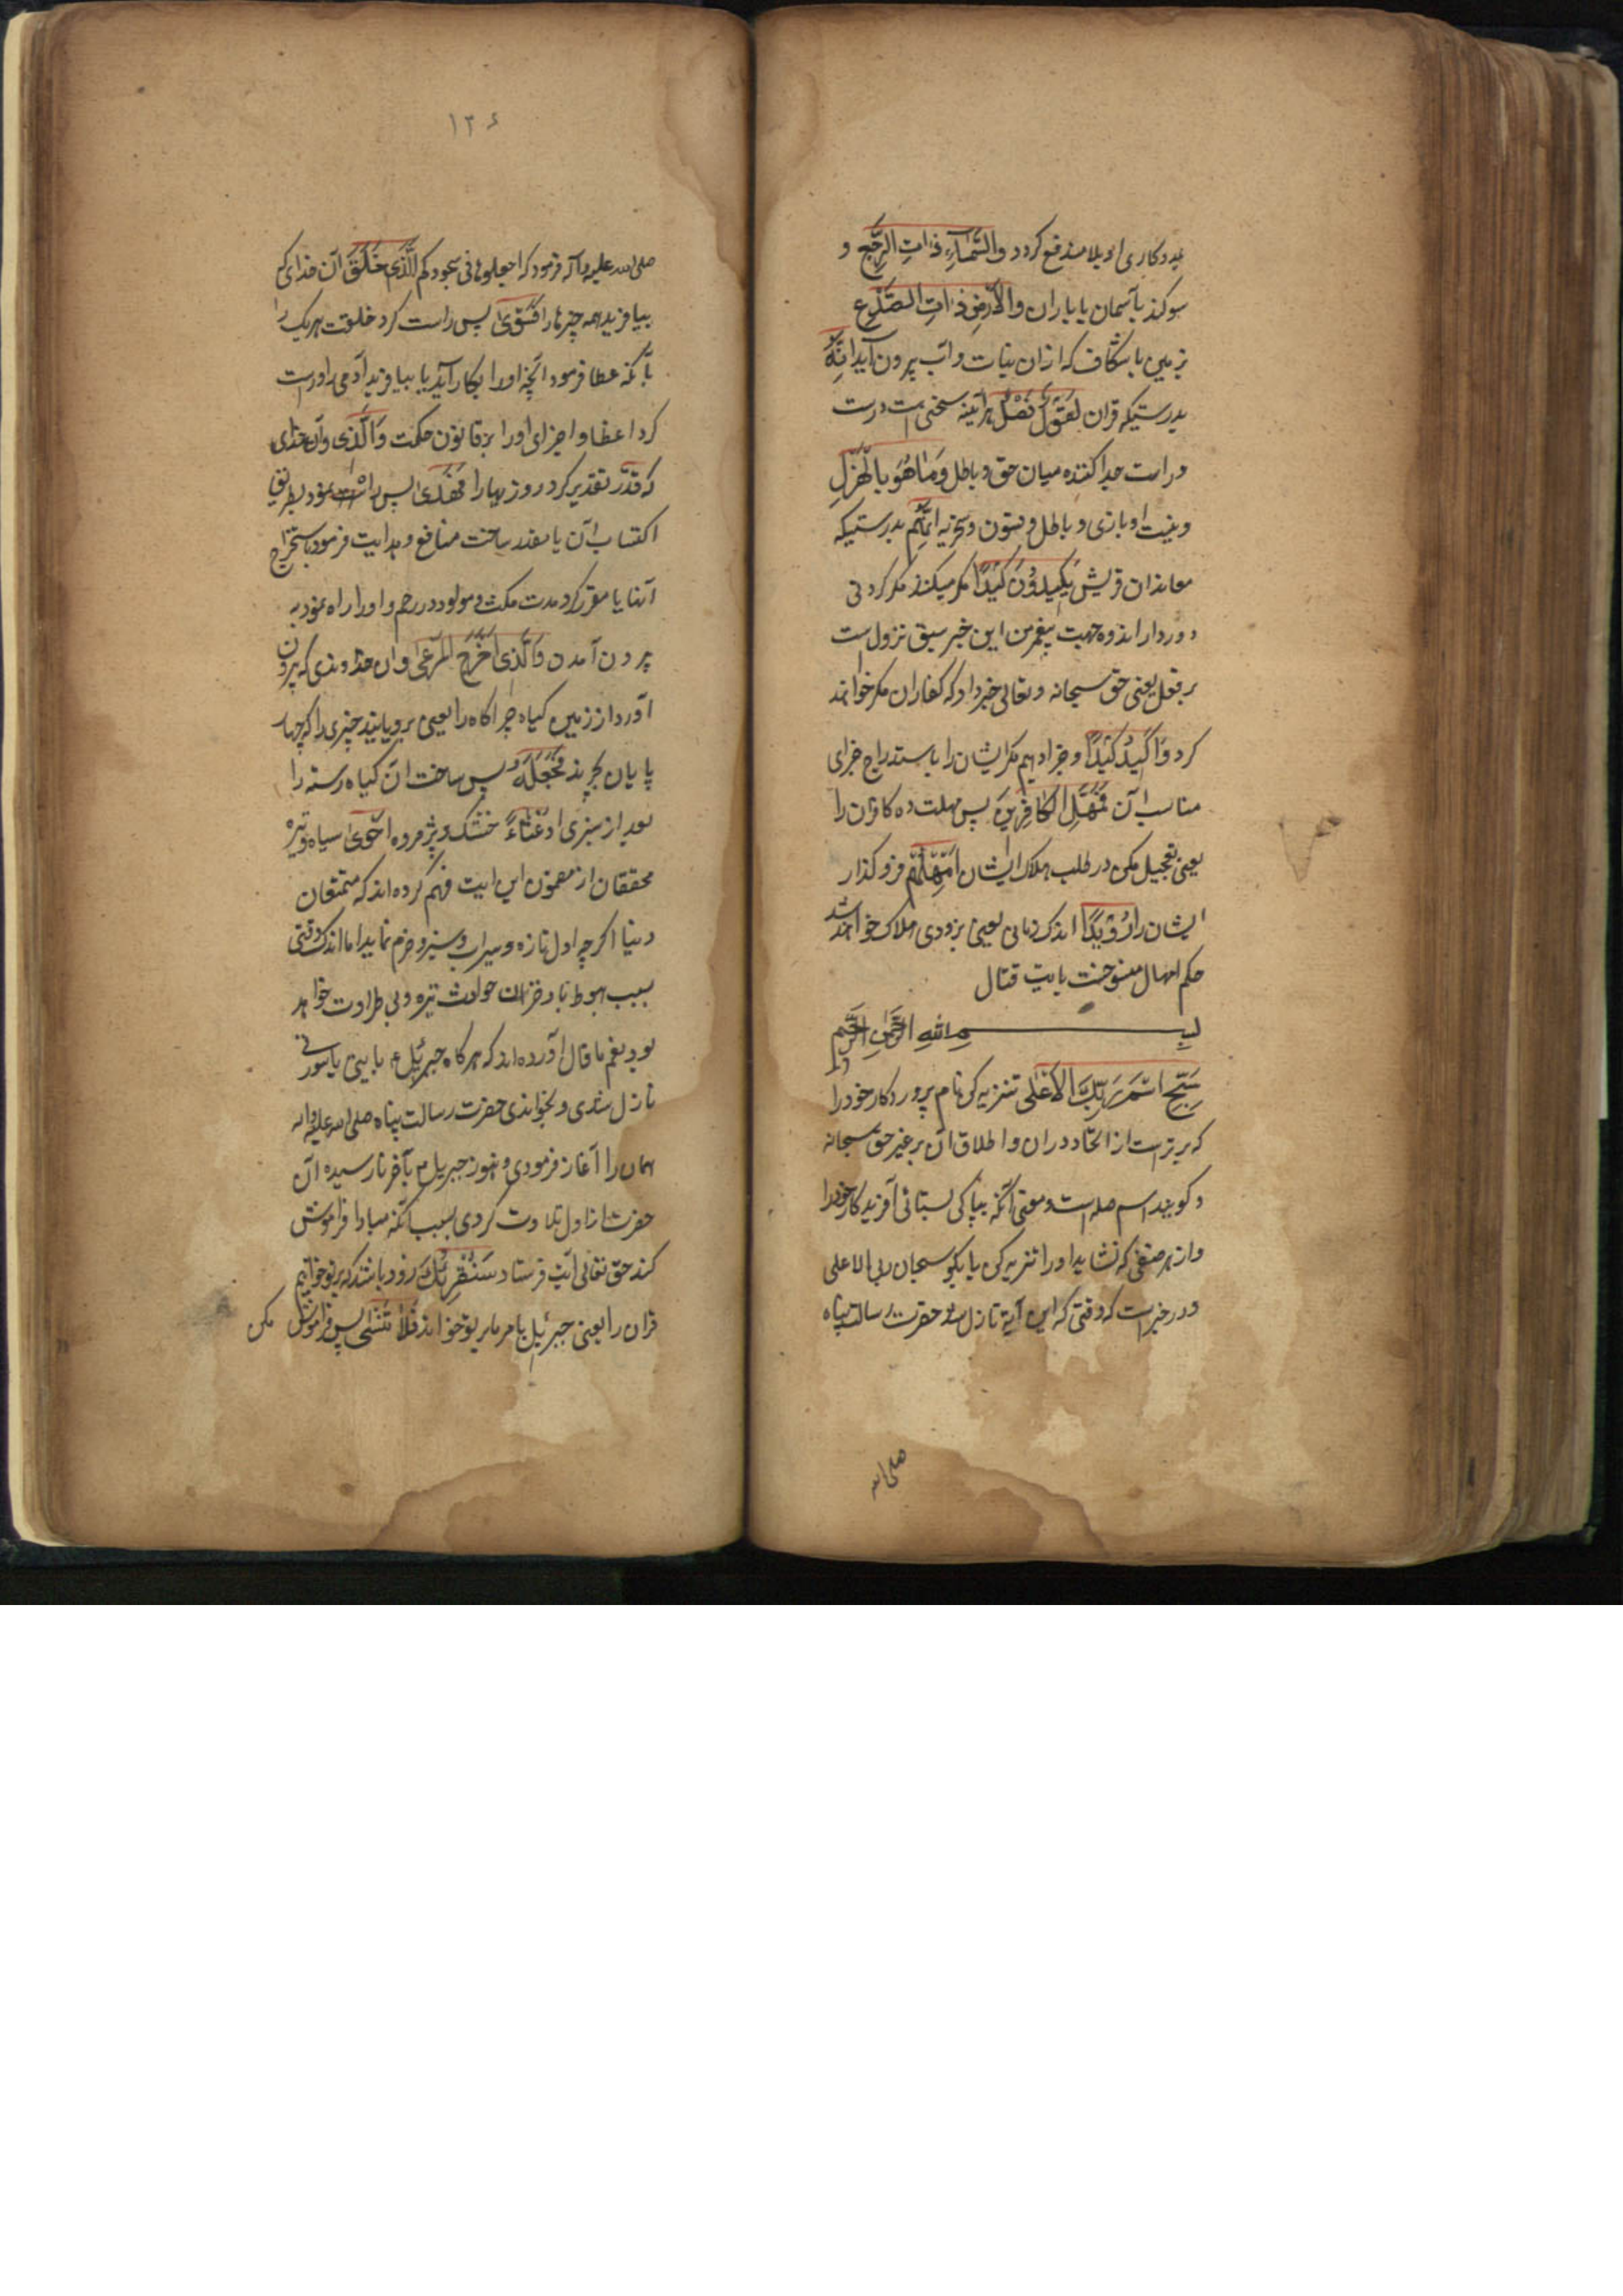 بمددکاری او بلا مندفع کردد والسَّمَآءِ ذاتِ الرَّجع و
سوکند بآسمان با باران والارضِ ذاتِ الصَّدع
زمین با شکاف که ازان نبات و آب بیرون آید انَّهُ
بدرستیکه قران لَقَولٌ فَصْلٌ هرآینه سخنی است درست
و راست جدا کننده میان حق و باطل وَمَا هُوَ بالْهَزْلِ
و نیست او بازی و باطل و فسون و سخریه انَّهُم بدرستیکه
معاندان قریش یَکِیدُونَ کَیْدًا مکر میکنند مکر کردنی
در دار الندوه جهت پیغمبر من این خبر سبق نزول است
بر فعل یعنی حق سبحانه و تعالی خبر داد که کفاران مکر خوانند
کرد وَاَکِیدُ کَیْدًا و جزا دهم مکر ایشان را باستدراج جزای
مناسب آن فَمَهِّلِ الکَافِرِینَ پس مهلت ده کافران را
یعنی تعجیل مکن در طلب هلاک ایشان اَمْهِلْهُم فرو کذار
ایشان را رُوَیْدًا اندک زمانی یعنی بزودی هلاک خواهند شد
حکم امهال منسوخست بایت قتال
بسم الله الرَّحمٰنِ الرَّحِیم
سَبِّحِ اسْمَ رَبِّکَ الاَعْلی تنزیه کن نام پروردکار خود را
که برترست از الحاد دران و اطلاق آن بر غیر حق سبحانه
و کویند اسم صله است و معنی آنکه بپاکی بستائی آفریدکار خود را
و از هر صفتی که نشاید او را تنزیه کن یا بکو سبحان ربی الاعلی
و در خبر است که وقتی که این آیة نازل شد حضرت رسالت پناه
صلی الله
۱۲۶
صلی الله علیه وآله فرمود که اجعلوها فی سجودکم الَّذی خَلَقَ آن خدای که
بیافرید همه چیزها را فَسَوّیٰ پس راست کرد خلقت هر یک را
بآنکه عطا فرمود آنچه او را بکار آید یا بیافرید آدمی را و راست
کرد اعضا و اجزای او را بر قانون حکمت وَالَّذی و آن خدای
که قَدَّرَ تقدیر کرد روزیها را فَهَدیٰ پس راه نمود بطریق
اکتساب آن یا مقدر ساخت منافع و هدایت فرمود باستخراج
آنها یا مقرر کرد مدت مکث مولود در رحم و او را راه نمود به
بیرون آمدن وَالَّذی اَخْرَجَ المَرعیٰ و آن خداوندی که بیرون
آورد از زمین کیاه چراکاه را یعنی برویانید چیزی را که چهار
پایان بچرند فَجَعَلَهُ پس ساخت آن کیاه رسته را
بعد از سبزی او غُثَآءً خشک و پژمرده اَحْویٰ سیاه و تیره
محققان از مضمون این ایت فهم کرده اند که متمتعان
دنیا اکرچه اول تازه و سیراب و سبز و خرم نماید اما اندک وقتی
بسبب هبوط باد خزان حوادث تیره و بی طراوت خواهد
بود نعم ما قال آورده اند که هرکاه جبرئیل ع با آیتی یا سورتی
نازل شدی و بخواندی حضرت رسالت پناه صلی الله علیه واله
همان را آغاز فرمودی و هنوز جبریل ع بآخر نارسیده آن
حضرت از اول تلاوت کردی بسبب آنکه مبادا فراموش
کند حق تعالی آیت فرستاد سَنُقْرِئُکَ زود باشد که بر تو خوانیم
قران را یعنی جبرئیل بامر ما بر تو خواند فَلَا تَنْسٰی پس فراموش مکن